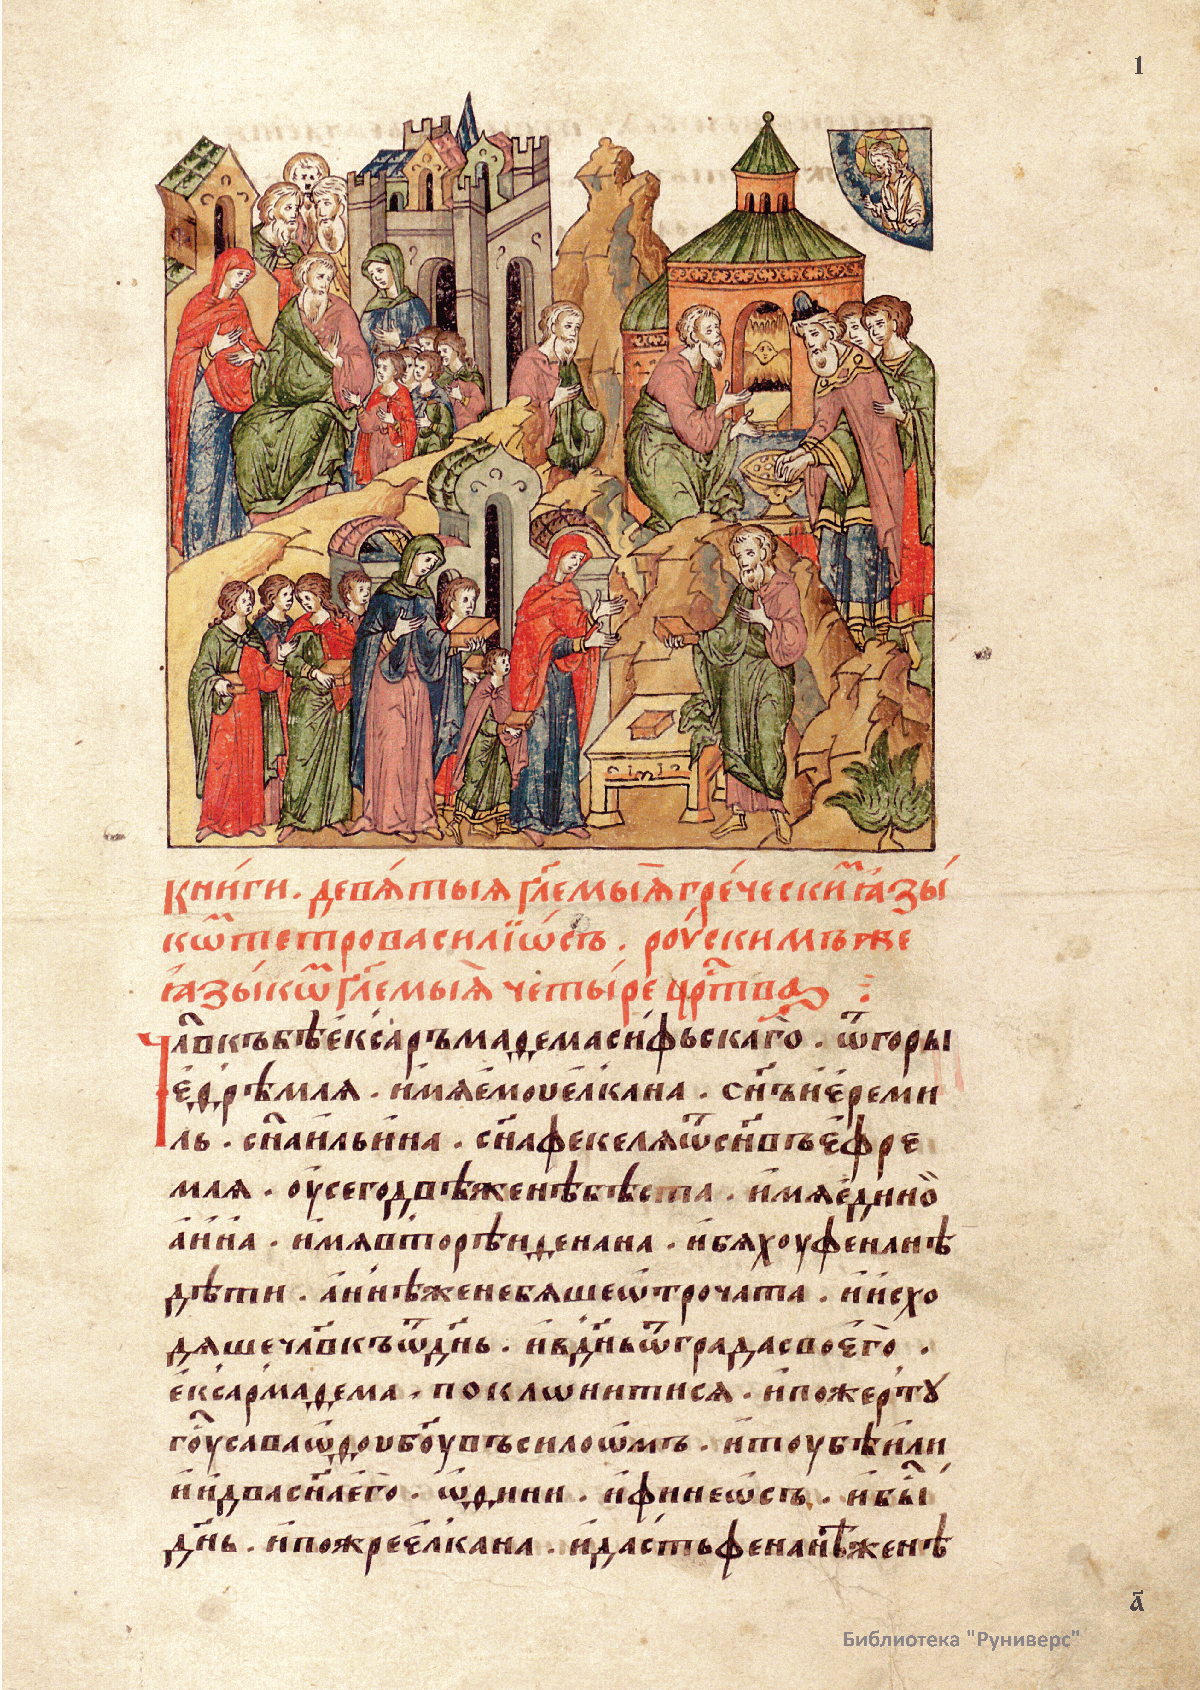 1
Книги. девѧтыѧ гл҃емыѧ греческиⷨ ꙗзы
кѡⷨ тетровасилїѡсъ. рꙋскимъ же
ꙗзыкѡⷨ гл҃емыѧ четыре црⷭ҇тва
Чл҃вкъ бѣ е҆ксаръ мадема сифьскаго. ѿ горы
е҆дрѣмлѧ. и҆мѧ е҆моу е҆лкана. сн҃ъ і҆е҆реми
ль. сн҃а и҆льина. сн҃а фекелѧ ѡⷭ҇ сн҃въ е҆фре
млѧ. оу сего двѣ женѣ бѣста. и҆мѧ е҆диной
анна. и҆мѧ второⷤи денана. и҆ бѧхоу фенанѣ
дѣти. аннѣ же не бѧше ѡ҆трочата. и҆ и҆схо
дѧше чл҃вкъ ѿ дн҃ь. и҆ в дн҃ь ѿ града своего.
е҆ксармадема. поклѡнитисѧ. и҆ пожерту
гꙋ҃ саваѡду бꙋ҃ въ силоѡмъ. и҆ тоу бѣ или
и҆ и҆ два сн҃а е҆го. ѡ҆днии. и҆ финеѡсъ. и҆ быⷭ҇
дн҃ь. и҆ пожре е҆лкана. и҆ дасть фенанѣ женѣ
а҃
Библиотека "Руниверс"